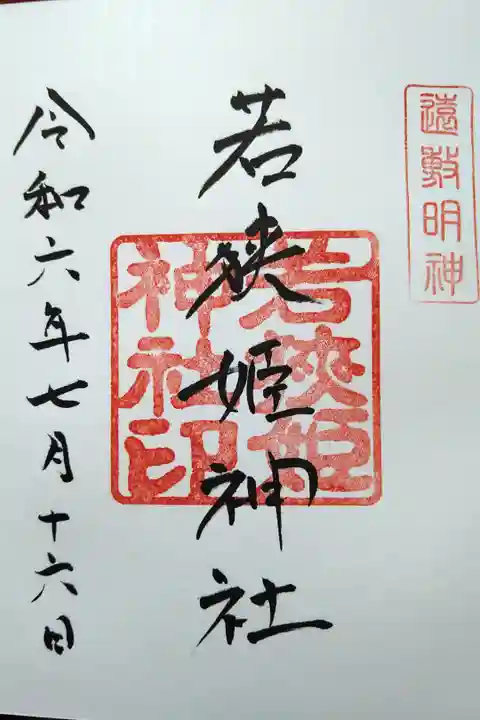 遠敷明神
若狹姫神社
若狹姫
神社印
令和六年七月十六日